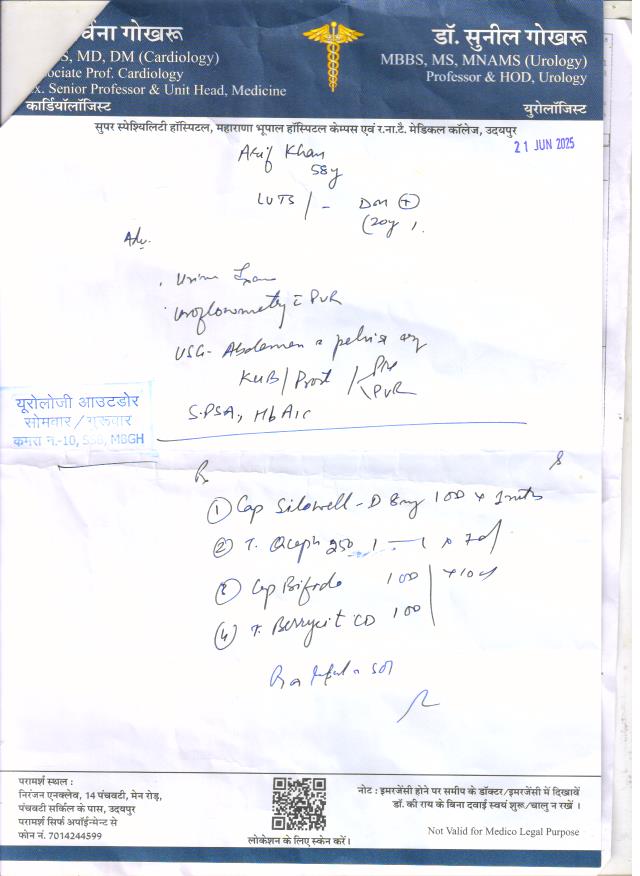 र्चना गोखरू
S, MD, DM (Cardiology)
ociate Prof. Cardiology
x. Senior Professor & Unit Head, Medicine
कार्डियॉलॉजिस्ट
डॉ. सुनील गोखरू
MBBS, MS, MNAMS (Urology)
Professor & HOD, Urology
युरोलॉजिस्ट
सुपर स्पेश्यिलिटी हॉस्पिटल, महाराणा भूपाल हॉस्पिटल केम्पस एवं र.ना.टै. मेडिकल कॉलेज, उदयपुर
21 JUN 2025
Arif Khan
58y
LUTS / - DM (+)
(20y).
Adv.
Urine Exam
Uroflowmetry c PVR
USG - Abdomen & pelvis
KUB / Prost / Pre
PVR
S.PSA, HbA1C
यूरोलोजी आउटडोर
सोमवार / गुरूवार
कमरा नं.-10, SSB, MBGH
Rx
① Cap Silowell-D 8mg 1OD x 1mth
② T. Qceph 250 1 — 1 x 7d
③ Cap Bifrde 1OD x 10d
④ T. Berrycit CD 1OD
परामर्श स्थल :
निरंजन एनक्लेव, 14 पंचवटी, मेन रोड़,
पंचवटी सर्किल के पास, उदयपुर
परामर्श सिर्फ अपॉईन्मेन्ट से
फोन नं. 7014244599
लोकेशन के लिए स्केन करें।
नोट : इमरजेंसी होने पर समीप के डॉक्टर/इमरजेंसी में दिखावें
डॉ. की राय के बिना दवाई स्वयं शुरू/चालु न रखें ।
Not Valid for Medico Legal Purpose